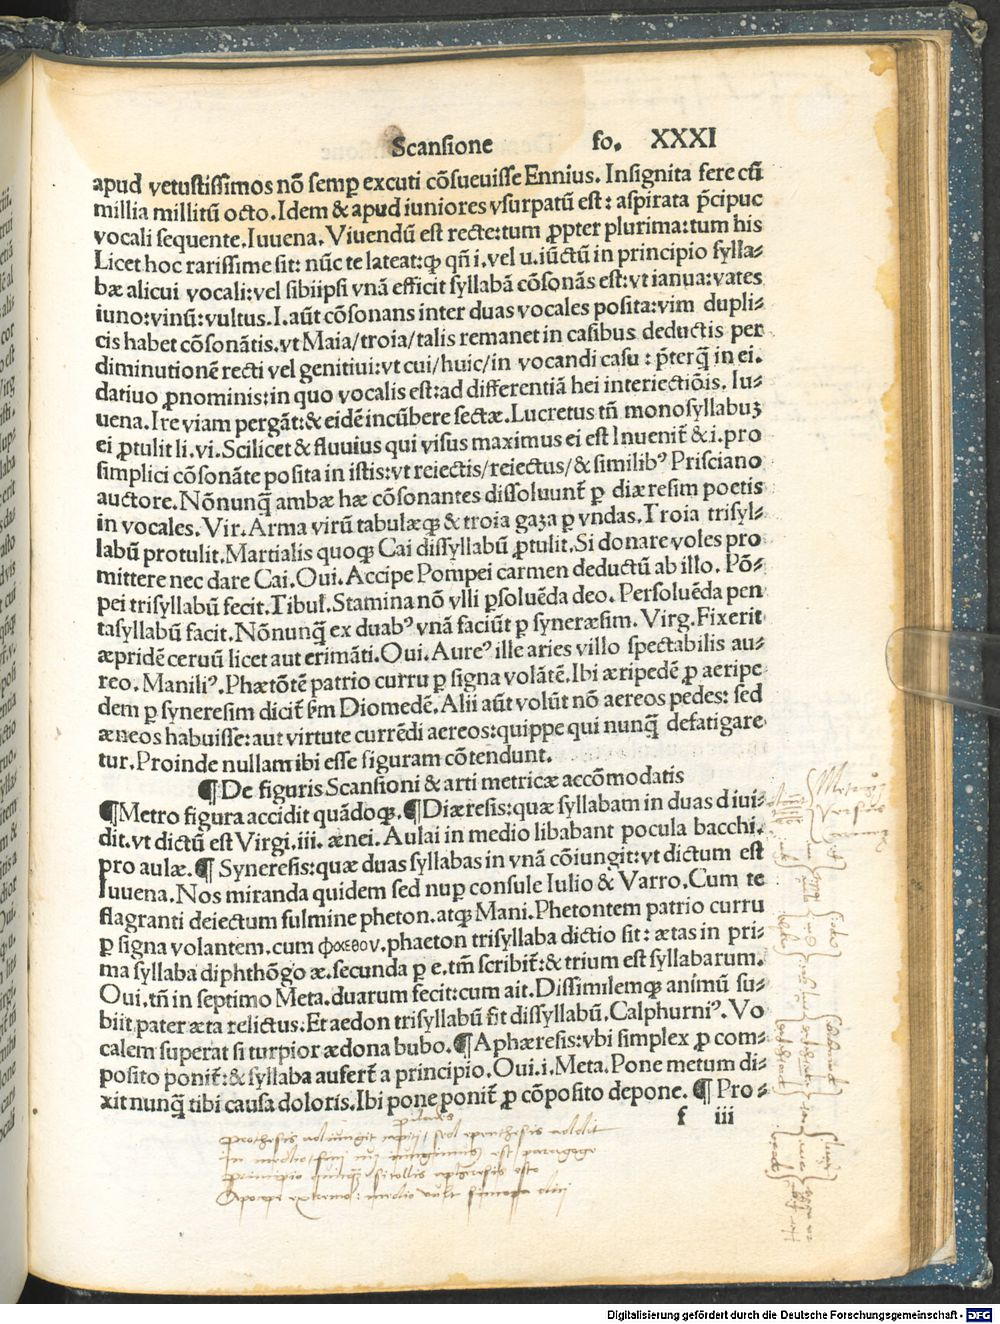 Scansione fo. XXXI
apud vetustissimos nõ semꝑ excuti cõsueuisse Ennius. Insignita fere cũ
millia militũ octo. Idem & apud iuniores vsurpatũ est: aspirata p̃cipue
vocali sequente. Iuuena. Viuendũ est recte: tum ꝓpter plurima: tum his
Licet hoc rarissime sit: nũc te lateat: ꝙ qñ i. vel u. iũctũ in principio sylla⸗
bæ alicui vocali: vel sibiipsi vnã efficit syllabã cõsonãs est: vt ianua: vates
iuno: vinũ: vultus. I. aũt cõsonans inter duas vocales posita: vim dupli⸗
cis habet cõsonãtis. vt Maia/troia/talis remanet in casibus deductis per
diminutionẽ recti vel genitiui: vt cui/huic/in vocandi casu: p̃terq̃ in ei.
datiuo ꝓnominis: in quo vocalis est: ad differentiã hei interiectiõis. Iu⸗
uena. Ire viam pergãt: & eidẽ incũbere sectæ. Lucretus tñ monosyllabuꝫ
ei ꝓtulit li. vi. Scilicet & fluuius qui visus maximus ei est Inuenit̃ & i. pro
simplici cõsonãte posita in istis: vt reiectis/reiectus/& similibꝰ Prisciano
auctore. Nõnunq̃ ambæ hæ cõsonantes dissoluunt̃ ꝑ diæresim poetis
in vocales. Vir. Arma virũ tabulæqꝫ & troia gaza ꝑ vndas. Troia trisyl⸗
labũ protulit. Martialis quoqꝫ Cai dissyllabũ ꝓtulit. Si donare voles pro
mittere nec dare Cai. Oui. Accipe Pompei carmen deductũ ab illo. Põ⸗
pei trisyllabũ fecit. Tibul. Stamina nõ vlli ꝑsoluẽda deo. Persoluẽda pen
tasyllabũ facit. Nõnunq̃ ex duabꝰ vnã faciũt ꝑ synæresim. Virg. Fixerit
æripedẽ ceruũ licet aut erimãti. Oui. Aureꝰ ille aries villo spectabilis au⸗
reo. Maniliꝰ. Phætõtẽ patrio curru ꝑ signa volãtẽ. Ibi æripedẽ ꝓ aeripe⸗
dem ꝑ syneresim dicit̃ ẜm Diomedẽ. Alii aũt volũt nõ aereos pedes: sed
æneos habuisse: aut virtute currẽdi aereos: quippe qui nunq̃ defatigare
tur. Proinde nullam ibi esse figuram cõtendunt.
¶ De figuris Scansioni & arti metricæ accõmodatis
¶ Metro figura accidit quãdoqꝫ. ¶ Diæresis: quæ syllabam in duas diui⸗
dit. vt dictũ est Virgi. iii. ænei. Aulai in medio libabant pocula bacchi.
pro aulæ. ¶ Syneresis: quæ duas syllabas in vnã cõiungit: vt dictum est
Iuuena. Nos miranda quidem sed nuꝑ consule Iulio & Varro. Cum te
flagranti deiectum fulmine pheton. atqꝫ Mani. Phetontem patrio curru
ꝑ signa volantem. cum φαεθον. phaeton trisyllaba dictio sit: ætas in pri⸗
ma syllaba diphthõgo æ. secunda ꝑ e. tm̃ scribit̃: & trium est syllabarum.
Oui. tñ in septimo Meta. duarum fecit: cum ait. Dissimilemqꝫ animũ su⸗
biit pater æta relictus. Et aedon trisyllabũ fit dissyllabũ. Calphurniꝰ. Vo
calem superat si turpior ædona bubo. ¶ Aphæresis: vbi simplex ꝓ com⸗
posito ponit̃: & syllaba aufert̃ a principio. Oui. i. Meta. Pone metum di⸗
xit nunq̃ tibi causa doloris. Ibi pone ponit̃ ꝓ cõposito depone. ¶ Pro⸗
f iii
prothesis adiungit capiti, sed epenthesis addit
in medio
principio
Apocope extremo: medio vult sincopa
Digitalisierung gefördert durch die Deutsche Forschungsgemeinschaft - DFG